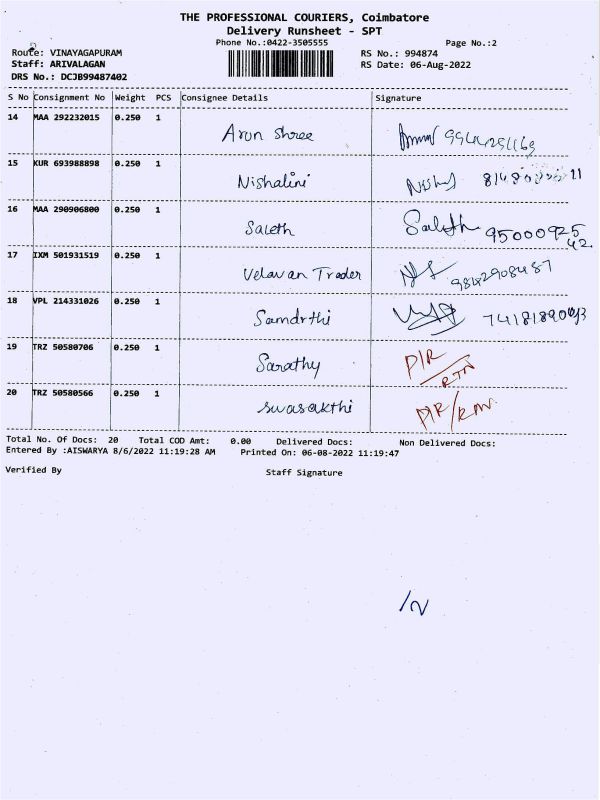 THE PROFESSIONAL COURIERS, Coimbatore
Delivery Runsheet - SPT
Phone No.:0422-3505555 Page No.:2
Route: VINAYAGAPURAM RS No.: 994874
Staff: ARIVALAGAN RS Date: 06-Aug-2022
DRS No.: DCJB99487402
S No Consignment No Weight PCS Consignee Details Signature
14 MAA 292232015 0.250 1 Arun Shree
15 KUR 693988898 0.250 1 Nishalini
16 MAA 290906800 0.250 1 Saleth Saleth 95000925
42.
17 IXM 501931519 0.250 1 Velavan Trader 9842908487
18 VPL 214331026 0.250 1
19 TRZ 50580706 0.250 1 Sarathy D/R
RTN
20 TRZ 50580566 0.250 1
Total No. Of Docs: 20 Total COD Amt: 0.00 Delivered Docs: Non Delivered Docs:
Entered By :AISWARYA 8/6/2022 11:19:28 AM Printed On: 06-08-2022 11:19:47
Verified By Staff Signature